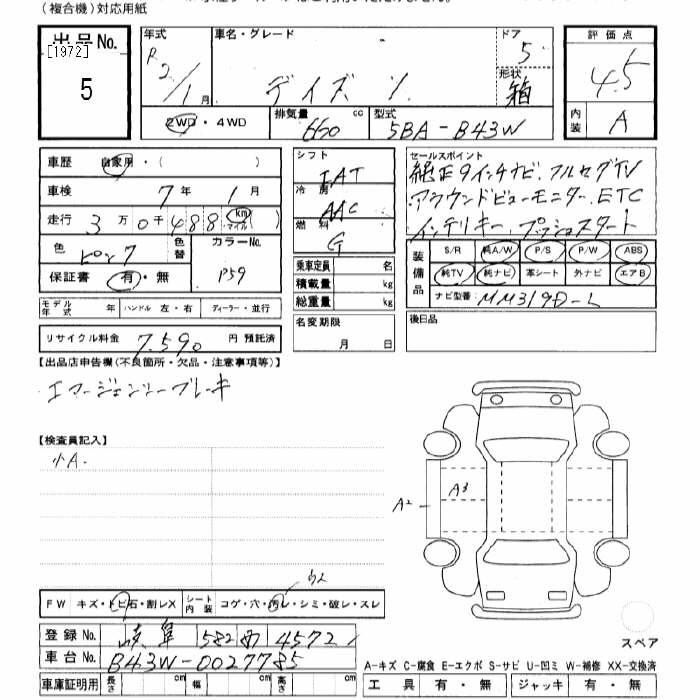 (複合機)対応用紙
出品No. [1972] 5
年式 R2/1月
車名・グレード デイズ X
ドア 5
形状 箱
評価点 4.5
内装 A
2WD・4WD
排気量 660 cc
型式 5BA-B43W
車歴 自家用・( )
車検 7年 1月
走行 3万0千488 km マイル
色 ピンク 色替
カラーNo. P59
保証書 有・無
モデル年式 年 ハンドル 左・右 ディーラー・並行
リサイクル料金 7.590 円 預託済
シフト IAT
冷房 AAC
燃料 G
乗車定員 名
積載量 kg
総重量 kg
名変期限 月 日
セールスポイント
純正9インチナビ.フルセグTV
アラウンドビューモニター.ETC
インテリキー.プッシュスタート
装備品 S/R 純A/W P/S P/W ABS
純TV 純ナビ 革シート 外ナビ エアB
ナビ型番 MM319D-L
後日品
【出品店申告欄(不良箇所・欠品・注意事項等)】
エマージェンシーブレーキ
【検査員記入】
小A.
A2 A3
うス
FW キズ・トビ石・割レX シート内装 コゲ・穴・汚レ・シミ・破レ・スレ
登録No. 岐阜 582 4572
車台No. B43W-0027785
車庫証明用 長さ cm 幅 cm 高さ cm
スペア
A-キズ C-腐食 E-エクボ S-サビ U-凹ミ W-補修 XX-交換済
工具 有・無 ジャッキ 有・無